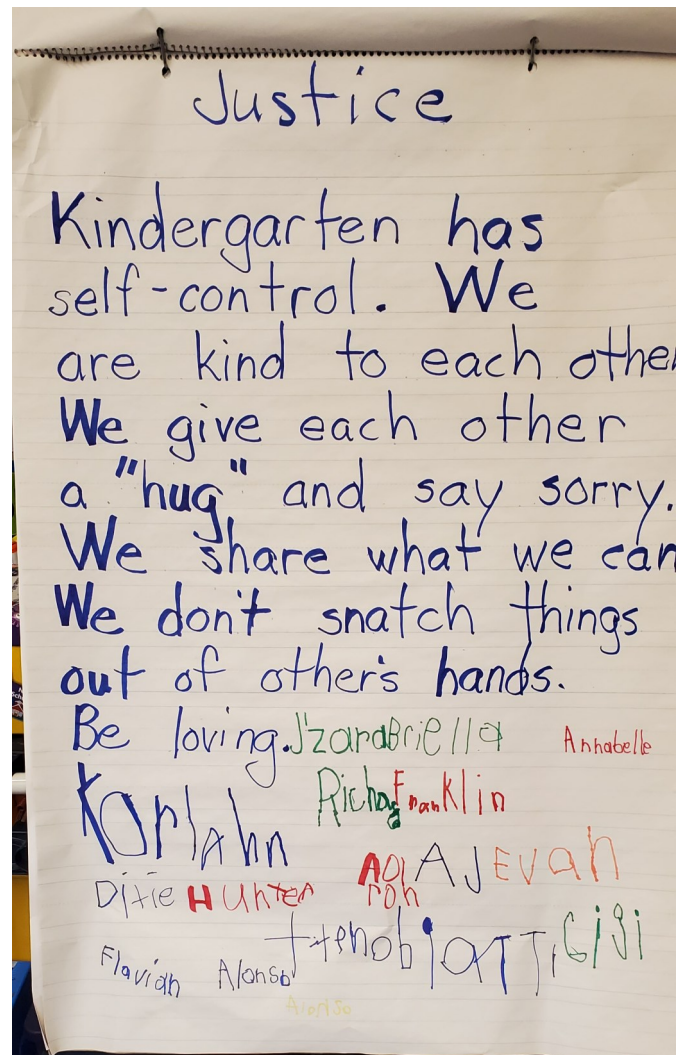 Justice
Kindergarten has
self-control. We
are kind to each other
We give each other
a "hug" and say sorry.
We share what we can
We don't snatch things
out of other's hands.
Be loving. J'zarabriella Annabelle
Franklin
Karlahn
Aaron AJ Evan
Dixie Hunter
Gigi
Flavian Alonso
Alonso